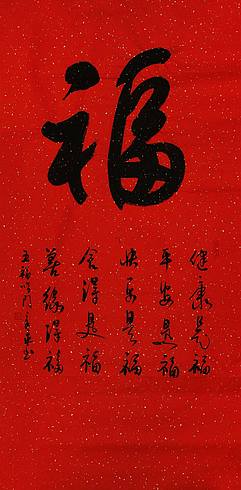 福
健康是福
平安是福
快乐是福
舍得是福
善缘得福
五福临门